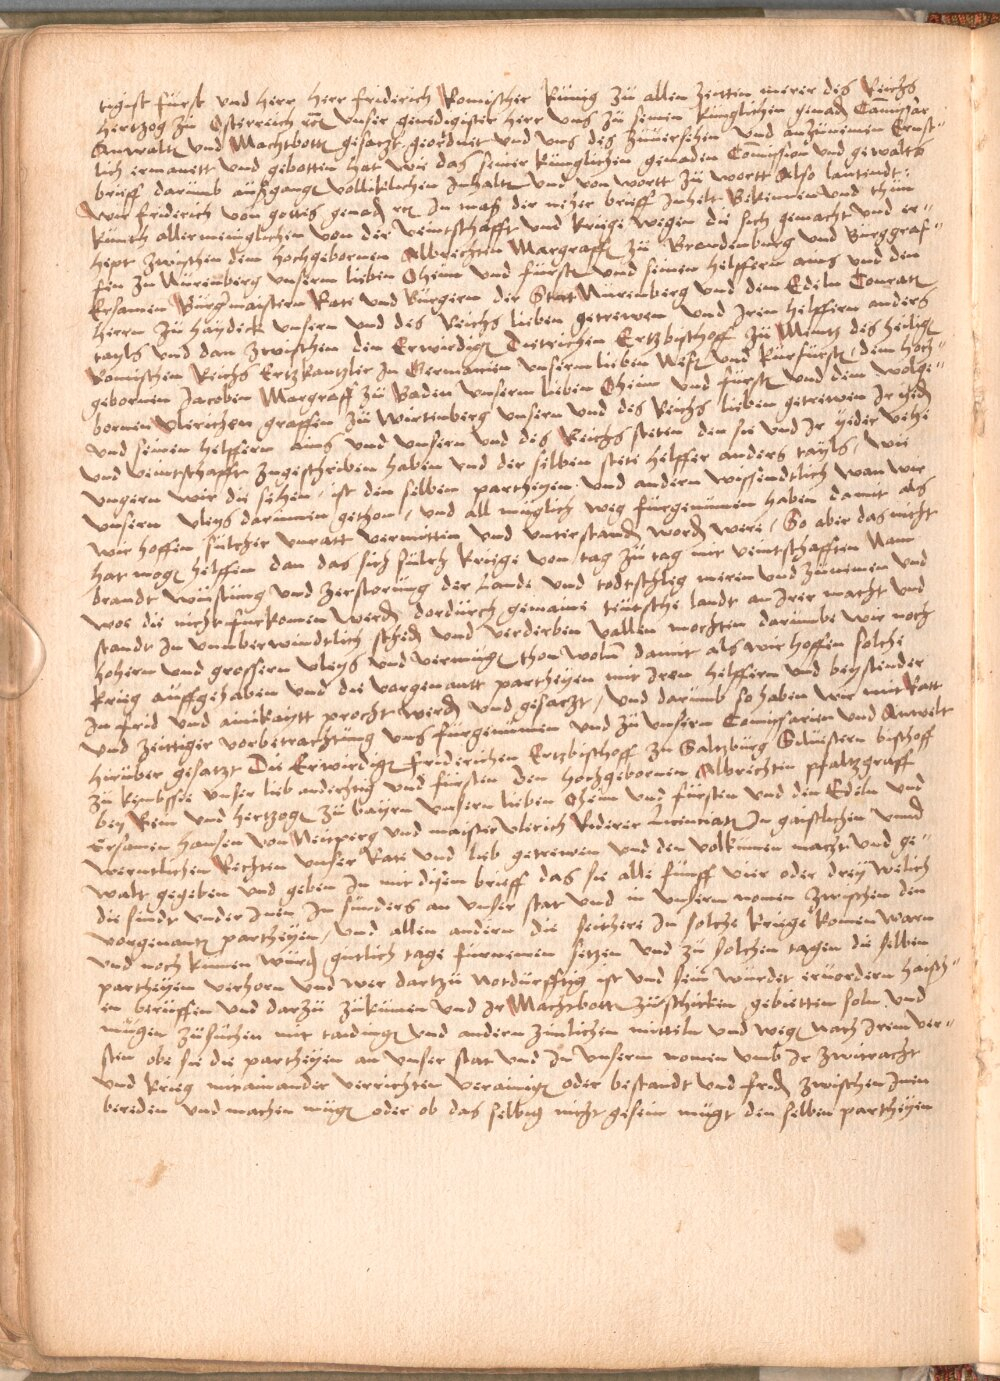 tigist fürst vnd herr herr friderich Romischer Künig zü allen zeitten merer des Reichs
hertzog zü Osterreich etc vnser genedigister herr vns zü seinen künglichen genad Comissar
Anwaltn vnd Machtbottn gesatzt geordnet vnd vns des zünersehen vnd anzünemen Ernst-
lich ermanett vnd gebotten hat wie das seiner künglichen genaden Comission vnd gewalts
brieff darümb außgangn volliklichen Inhaltn vnd von wortt zü wortt Also lautendt:
Wir friderich von gottes genadn etc In maß der necher brieff Inhelt Bekennen vnd thün
künth allermeinglichen von der veintschafft vnd kriege wegen die sich gemacht vnd er-
hept zwischen dem hochgebornen Albrechten Margraff zü Brandenburg vnd Burggraf-
fen zü Nürenberg vnserm lieben Oheim vnd fürstn vnd seinen helffern ains vnd den
Ersamen Bürgmaistern Rate vnd Bürgern der Stat Nürenberg vnd dem Edeln Conratn
herrn zü Haydeck vnsern vnd des Reichs lieben getrewen vnd Iren helffern anders
tayls vnd dan zwischen den Erwirdign Dietrichen Ertzbischoff zü Mentz des heilign
Romischen Reichs Ertzkantzler In Germanien vnserm lieben Nefn vnd kürfürstn, dem hoch-
gebornen Jacoben Margraff zü Baden vnserm lieben Oheim vnd fürstn vnd dem wolge-
bornen vlerichen graffen zü Wirtenberg vnsern vnd des Reichs lieben getrewen Ir yedn
vnd seinen helffern ains vnd vnsern vnd des Reichs steten den sie vnd Ir yeder vehe
vnd veintschafft zugeschriben haben vnd der selben stete helffer anders tayls, wie
vngern wir die sehen, ist den selben partheyen vnd andern wissendtlich wan wir
vnsern vleys darinnen gethon, vnd all müglich weg fürgenümen haben damit als
wir hoffen sülcher vnratt vermitten vnd vnterstandn wordn were, So aber das nicht
hat mogn helffen dan das sich sülch kriege von tag zü tag mit veintschafften Nam
brandt wüstüng vnd zerstorüng der Lande vnd todtschleg meren vnd zünemen vnd
woe die nicht fürkomen werdn dordürch gemaine teütsche landt an Irer macht vnd
standt In vnüberwindtlich schedn vnd verderben vallen mochten darümbe wir noch
hohern vnd grossern vleys vnd vermügn thon woln damit als wir hoffen solche
krieg auffgehaben vnd die vorgenantt partheyen mit Iren helffern vnd beystender
In frid vnd ainikaytt procht werdn vnd gesatzt, vnd darümb so haben wir mit Ratt
vnd zeittiger vorbetrachtüng vns fürgenümen vnd zü vnsern Comissarien vnd Anwelt
hirüber gesatzt Die Erwirdign friderichen Ertzbischoff zu Saltzbürg Silüestern bischoff
zü kembssee vnser lieb anderchtig vnd fürsten den hochgebornen Albrechten pfaltzgraff
bey Rein vnd hertzogn zü bayrn vnsern lieben Oheim vnd fürsten vnd den Edeln vnd
Ersamen hansen von Neitperg vnd maister vlerich Riderer Licenciatn In gaistlichen vnnd
werntlichen Rechten vnser Rate vnd lieb getrewen vnd den volkümen macht vnd ge-
walt gegeben vnd geben In mit disem brieff das sie alle fünff vier oder drey welich
die sindt vnder Inen In sünders an vnser stat vnd in vnserm namen zwischen den
vorgenantn partheyen, vnd allen andern die seithere In solche kriege komen warn
vnd noch kümen würdn gütlich tage fürnemen setzen vnd zü solchen tagen die selben
partheyen verhorn vnd wer dartzü notdürfftig ist vnd sein würdet ervordern haisch-
en berüffen vnd darzü zükümen vnd Ir Machtbottn züschicken gebietten soln vnd
mügen züsüchen mit taidingn vnd andern zimlichen mitteln vnd wegn nach Irem ver-
sten obe sie die partheyen an vnser stat vnd In vnserm namen vmb Ir zwitracht
vnd krieg mitainander verrichten verainign oder bestandt vnd fridn zwischen Inen
bereden vnd machen mügn oder ob das selbig nicht gesein mügt den selben partheyen